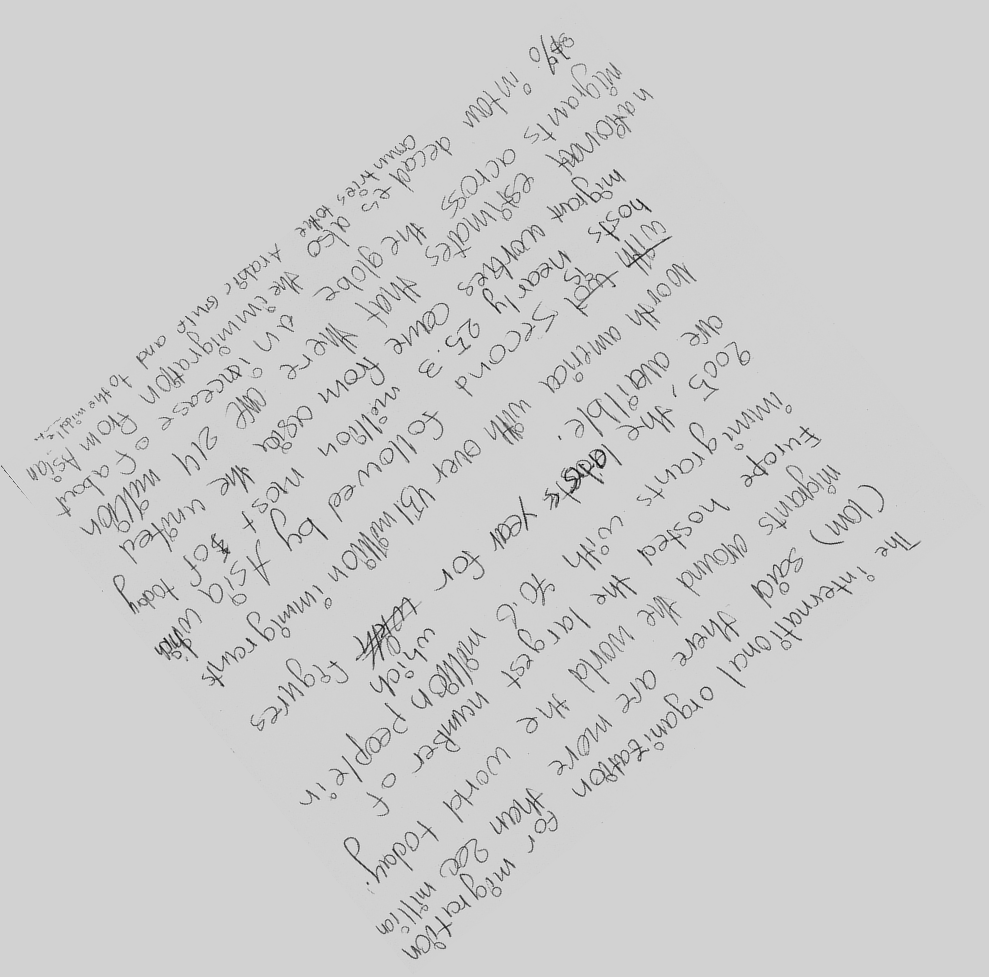 The international organization for migration
(Iom) said there are more than 200 million
migrants around the world the world today.
Europe hosted the largest number of
immigrants with 70.6 million people in
2005, the year for which figures
are availble.
North america with over 45.1 million immigrants
is second followed by Asia which
hosts nearly 25.3 million most of today
migrant workies come from asia the united
nations estimates that there are 214 million
migrants across the globe an increase of about
in tow decades also the immigration from Asian
countries to the Arabic and to the middle